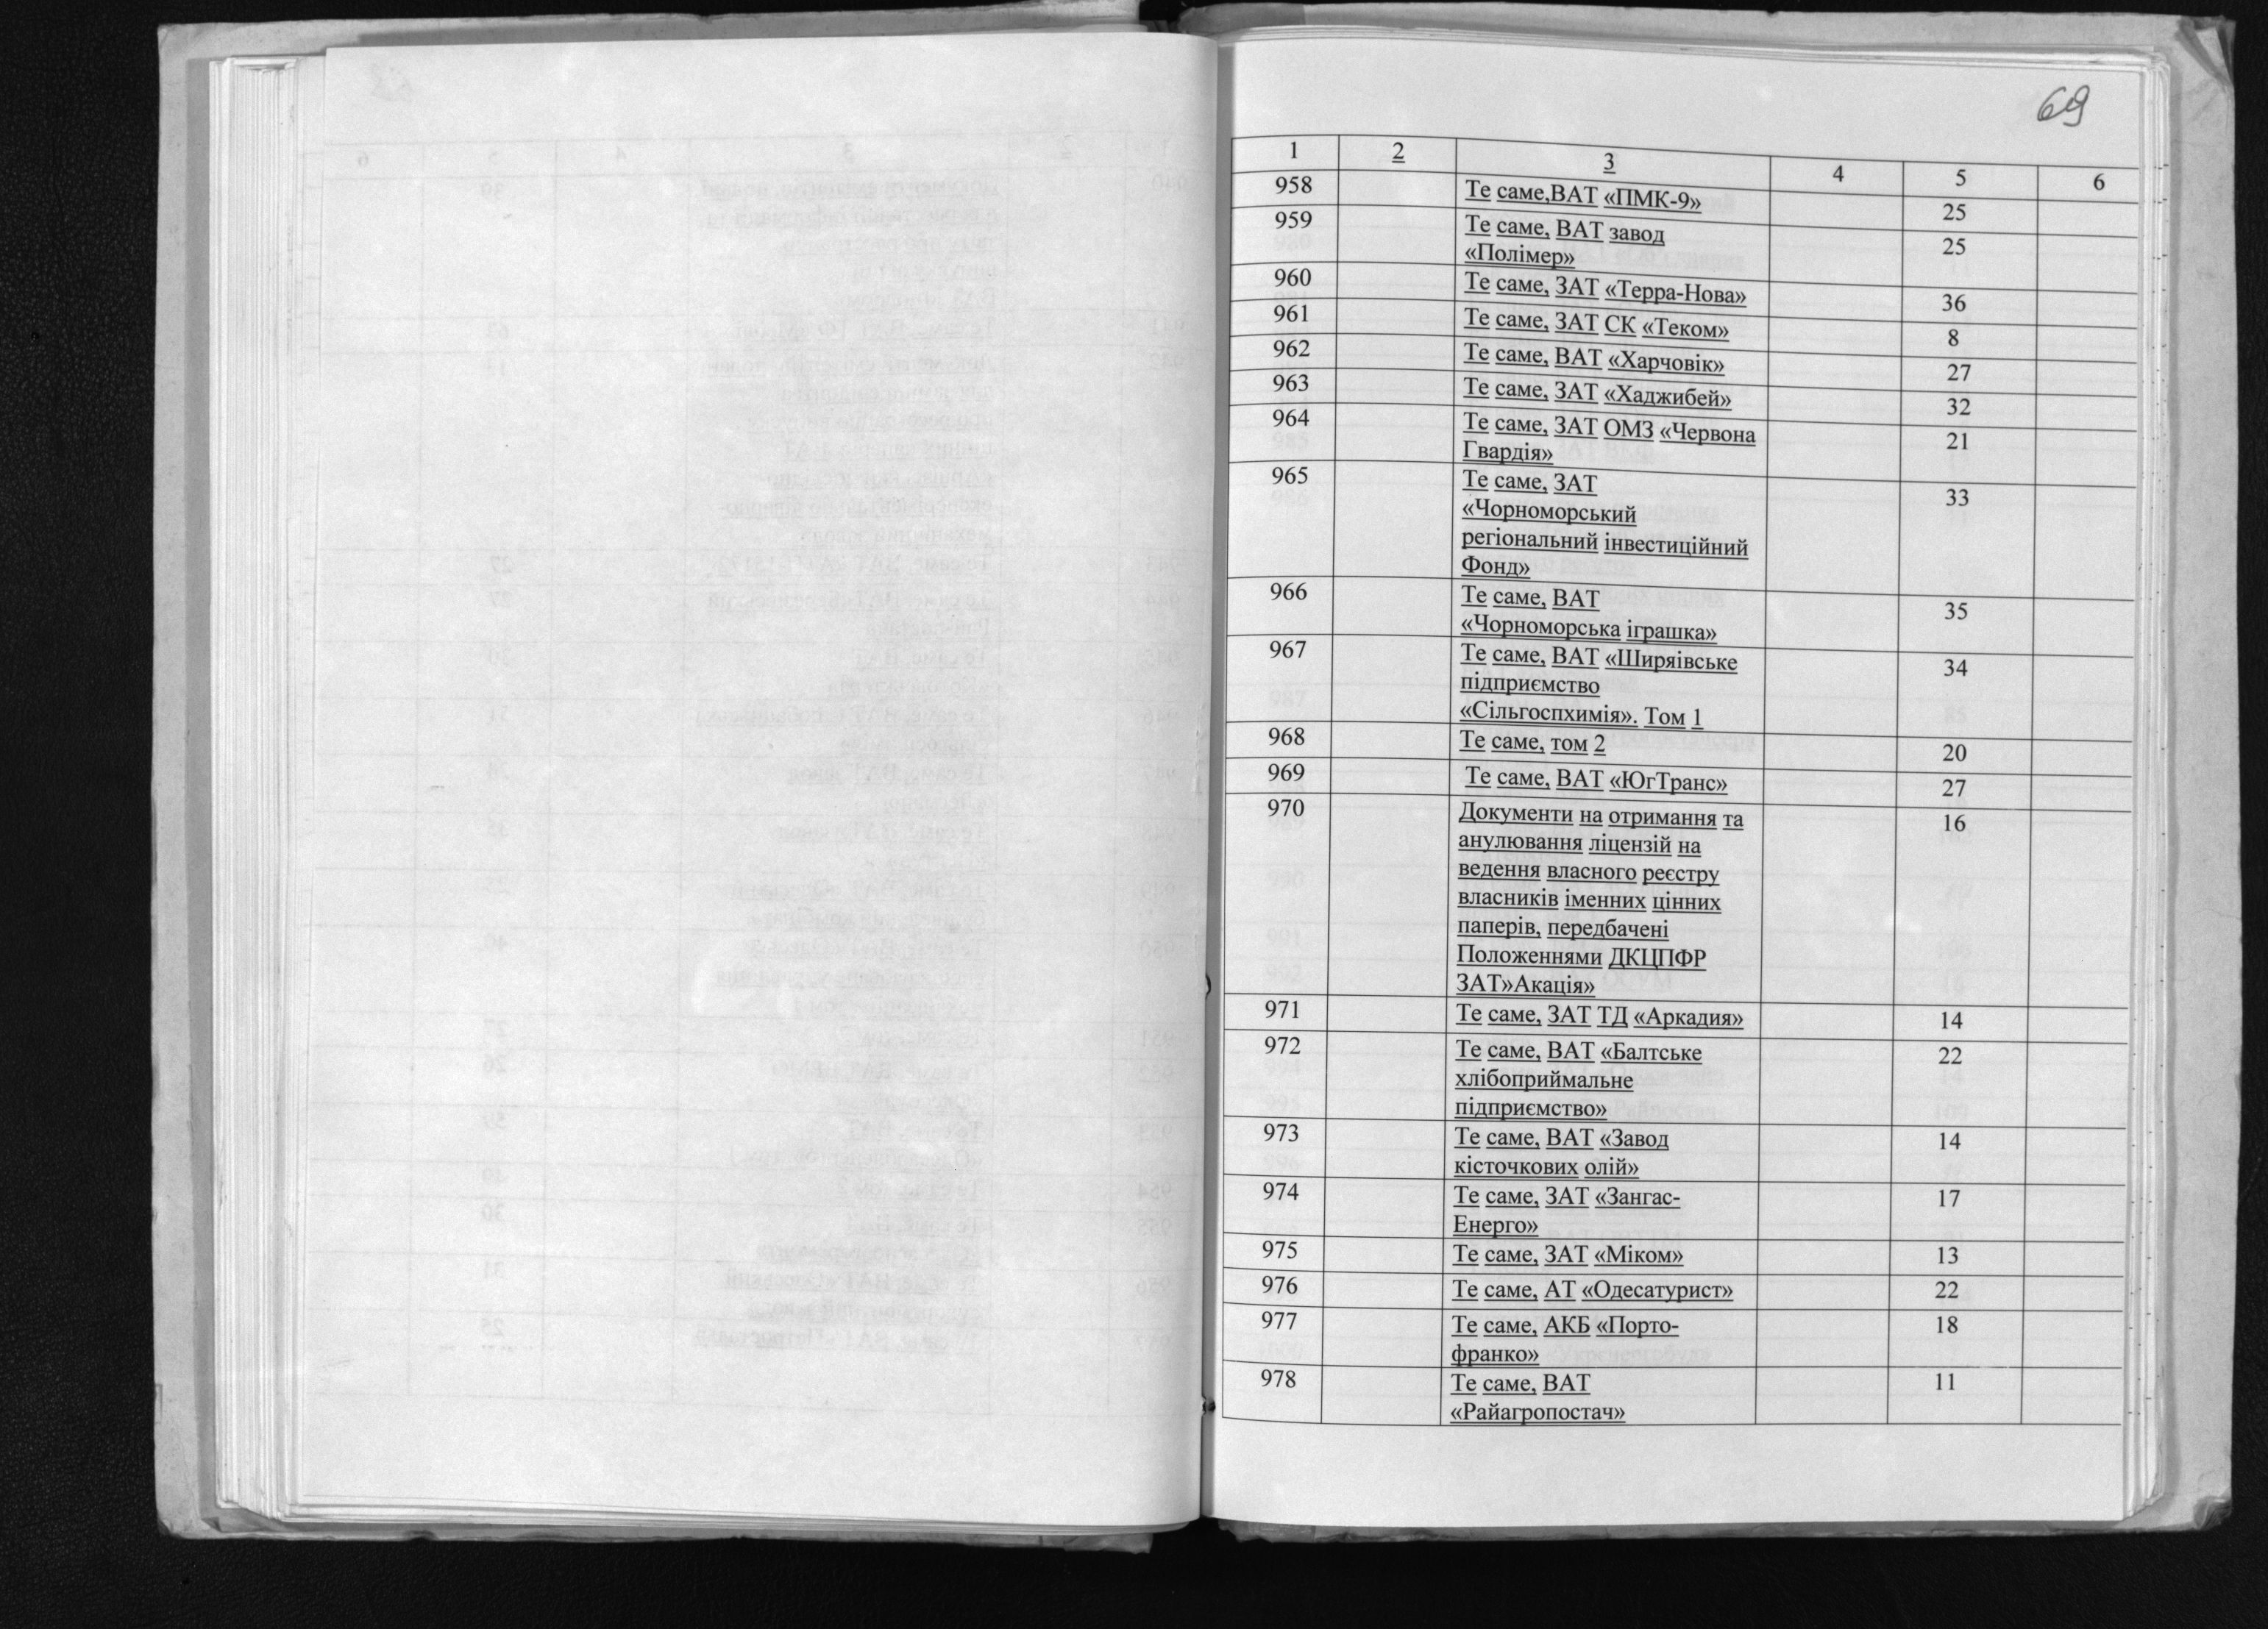 69
1 2 3 4 5 6
958 Те саме,ВАТ «ПМК-9» 25
959 Те саме, ВАТ завод 25
«Полімер»
960 Те саме, ЗАТ «Терра-Нова» 36
961 Те саме, ЗАТ СК «Теком» 8
962 Те саме, ВАТ «Харчовік» 27
963 Те саме, ЗАТ «Хаджибей» 32
964 Те саме, ЗАТ ОМЗ «Червона 21
Гвардія»
965 Те саме, ЗАТ 33
«Чорноморський
регіональний інвестиційний
Фонд»
966 Те саме, ВАТ 35
«Чорноморська іграшка»
967 Те саме, ВАТ «Ширяівське 34
підприємство
«Сільгоспхимія». Том 1
968 Те саме, том 2 20
969 Те саме, ВАТ «ЮгТранс» 27
970 Документи на отримання та 16
анулювання ліцензій на
ведення власного реєстру
власників іменних цінних
паперів, передбачені
Положеннями ДКЦПФР
ЗАТ»Акація»
971 Те саме, ЗАТ ТД «Аркадия» 14
972 Те саме, ВАТ «Балтське 22
хлібоприймальне
підприємство»
973 Те саме, ВАТ «Завод 14
кісточкових олій»
974 Те саме, ЗАТ «Зангас- 17
Енерго»
975 Те саме, ЗАТ «Міком» 13
976 Те саме, АТ «Одесатурист» 22
977 Те саме, АКБ «Порто- 18
франко»
978 Те саме, ВАТ 11
«Райагропостач»